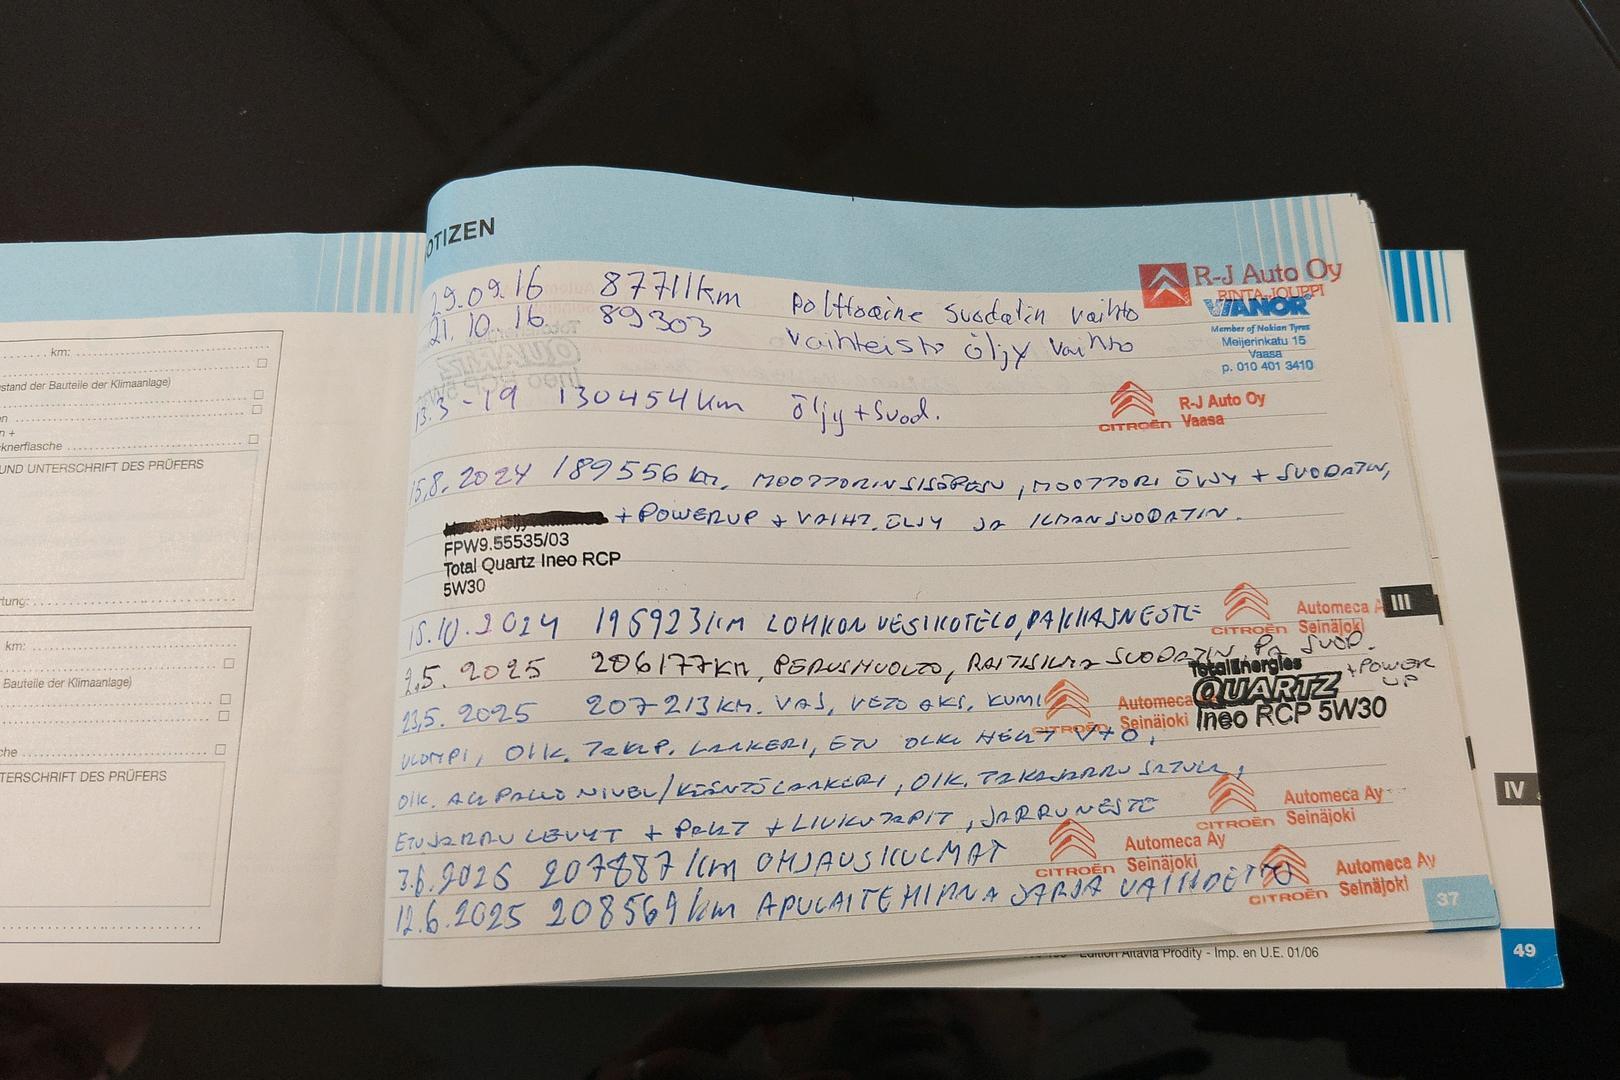 km:
stand der Bauteile der Klimaanlage)
en
n +
cknerflasche
UND UNTERSCHRIFT DES PRÜFERS
rtung:
km:
Bauteile der Klimaanlage)
che
TERSCHRIFT DES PRÜFERS
OTIZEN
29.09.16 87711km polttoaine suodatin vaihto
R-J Auto Oy
RINTA-JOUPPI
21.10.16 89303 vaihteisto öljy vaihto
VIANOR
Member of Nokian Tyres
Meijerinkatu 15
Vaasa
p. 010 401 3410
13.3-19 130454km öljy + Suod.
CITROËN
R-J Auto Oy
Vaasa
15.8.2024 189556 km, MOOTTORINSISÄPESU, MOOTTORI ÖLJY + SUODATIN,
+ POWERUP + VAIHT. ÖLJY JA ILMANSUODATIN.
FPW9.55535/03
Total Quartz Ineo RCP
5W30
15.10.2024 195923km LOHKON VESIKOTELO, PAKKASNESTE
CITROËN
Automeca A
Seinäjoki
2.5.2025 206177km, PERUSHUOLTO, RAITISILMA SUODATIN, PA SUOD.
+ POWER UP
TotalEnergies
QUARTZ
Ineo RCP 5W30
23.5.2025 207213km. VAS, VETO AKS, KUMI
CITROËN
Automeca
Seinäjoki
ULOMPI, OIK. TAKAP. LAAKERI, ETU OLKA HELAT V+O,
OIK. ALAPALLO NIVEL/KÄÄNTÖLAAKERI, OIK. TAKAJARRU SATULA,
ETUJARRU LEVYT + PALAT + LIUKUTAPIT, JARRUNESTE
CITROËN
Automeca Ay
Seinäjoki
3.6.2025 207887km OHJAUSKULMAT
CITROËN
Automeca Ay
Seinäjoki
12.6.2025 208569km APULAITEHIHNA SARJA VAIHDETTU
CITROËN
Automeca Ay
Seinäjoki
37
III
IV
Edition Altavia Prodity - Imp. en U.E. 01/06
49